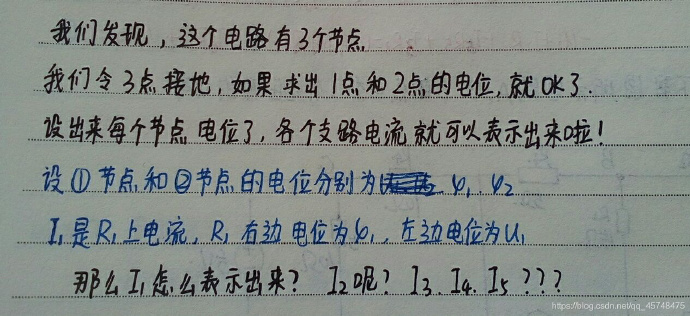 我们发现，这个电路有3个节点.
我们令3点接地，如果求出1点和2点的电位，就OK了.
设出来每个节点电位了，各个支路电流就可以表示出来啦！
设①节点和②节点的电位分别为 φ₁. φ₂
I₁是R₁上电流，R₁右边电位为φ₁，左边电位为U₁
那么I₁怎么表示出来？ I₂呢？ I₃. I₄. I₅ ？？？
https://blog.csdn.net/qq_45748475